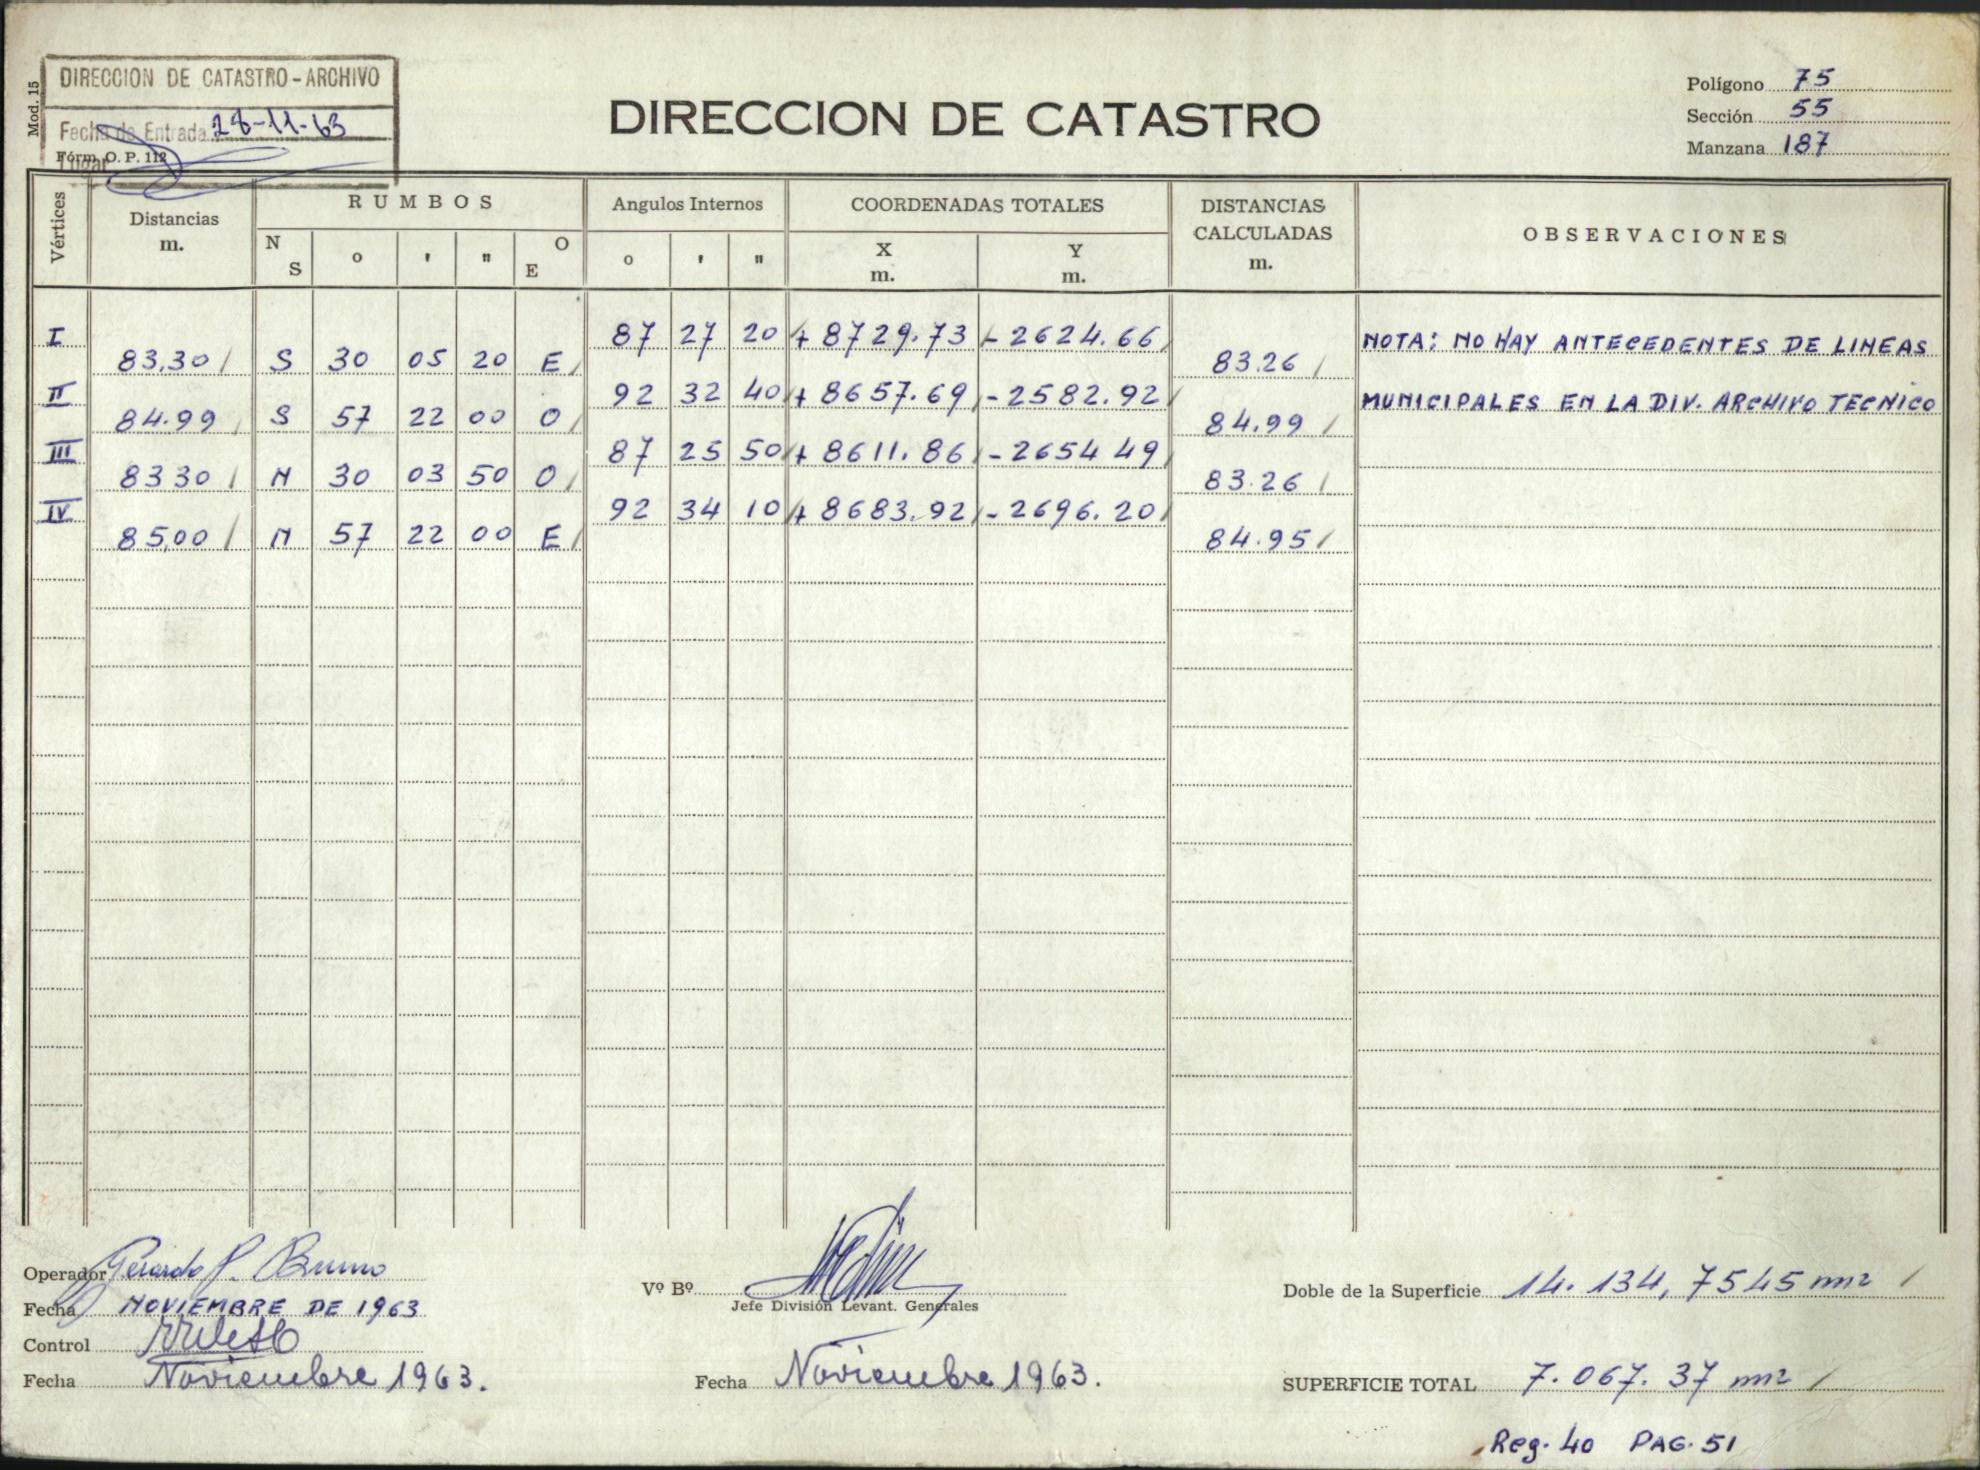 Mod. 15
DIRECCION DE CATASTRO-ARCHIVO
Fecha de Entrada 28-11-63
Lugar
Fórm. O. P. 112
DIRECCION DE CATASTRO
Polígono 75
Sección 55
Manzana 187
Vértices
Distancias m.
RUMBOS
N S o ' " O E
Angulos Internos
o ' "
COORDENADAS TOTALES
X m. Y m.
DISTANCIAS CALCULADAS m.
OBSERVACIONES
I 87 27 20 + 8729.73 - 2624.66 NOTA: NO HAY ANTECEDENTES DE LINEAS
83,30 S 30 05 20 E 83.26
II 92 32 40 + 8657.69 - 2582.92 MUNICIPALES EN LA DIV. ARCHIVO TECNICO
84.99 S 57 22 00 O 84.99
III 87 25 50 + 8611.86 - 2654 49
83 30 N 30 03 50 O 83.26
IV 92 34 10 + 8683.92 - 2696.20
85,00 N 57 22 00 E 84.95
Operador Gerardo P. Bruno
Fecha NOVIEMBRE DE 1963
Control
Fecha Noviembre 1963.
Vº Bº
Jefe División Levant. Generales
Fecha Noviembre 1963.
Doble de la Superficie 14.134,7545 m2
SUPERFICIE TOTAL 7.067.37 m2
Reg. 40 PAG. 51